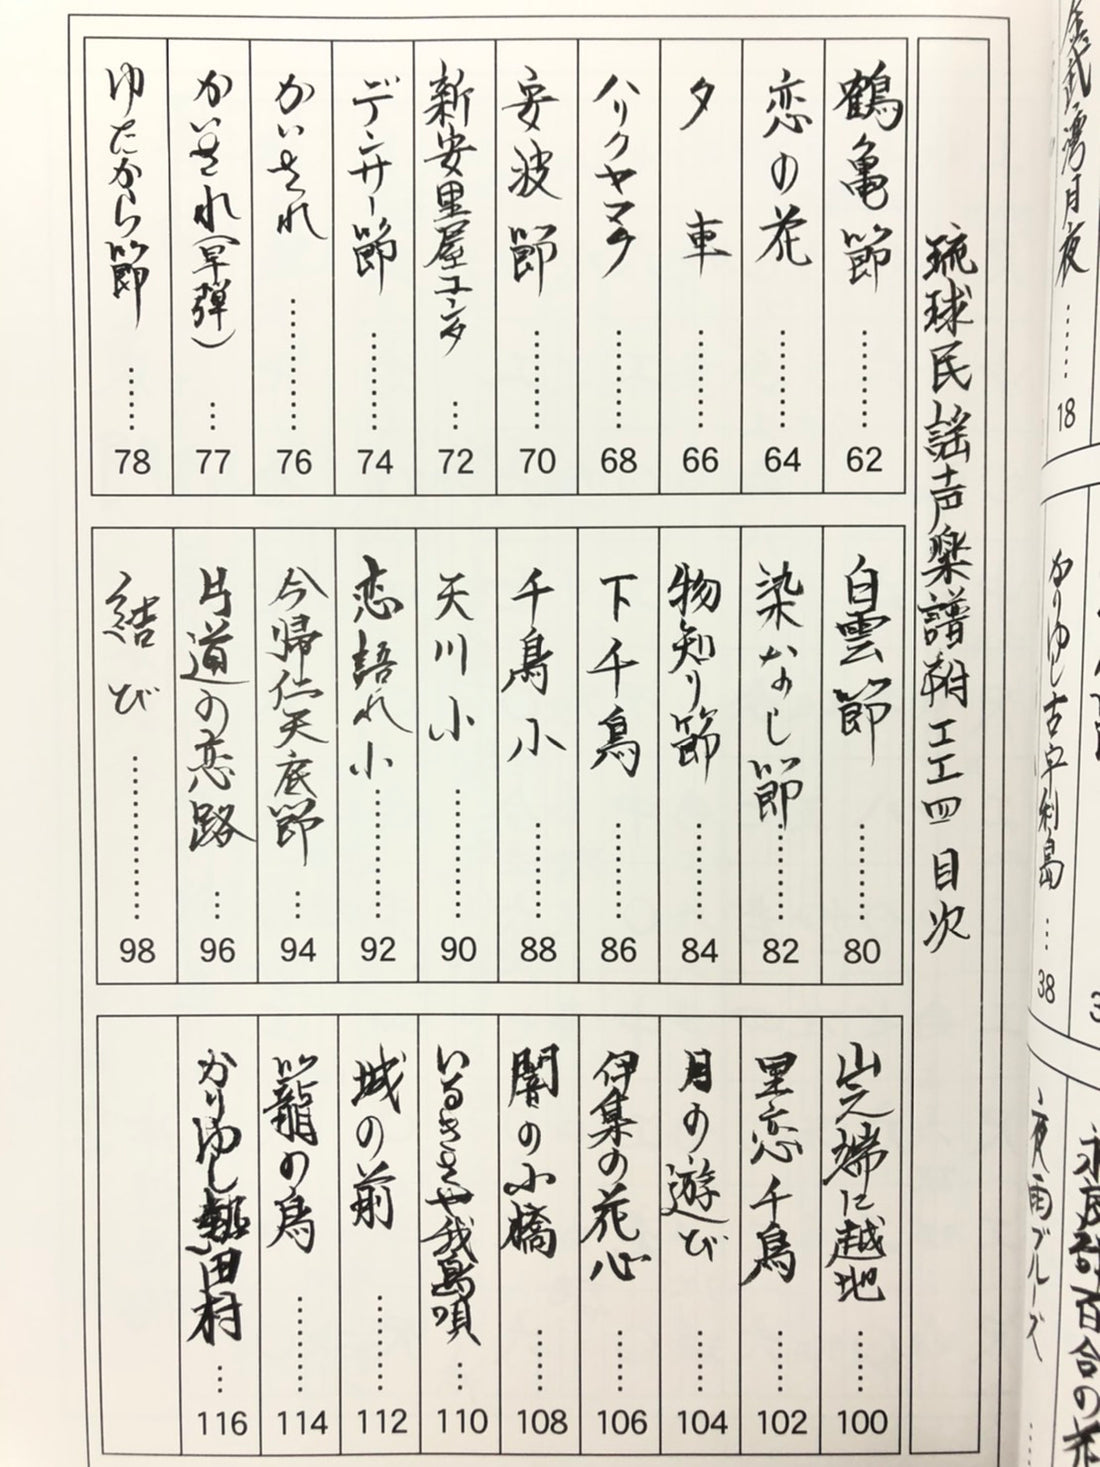 琉球民謡声楽譜附工工四 目次
鶴亀節 62
恋の花 64
夕車 66
ハリクヤマク 68
安波節 70
新安里屋ユンタ 72
デンサー節 74
かいされ 76
かいされ(早弾) 77
ゆたから節 78
白雲節 80
染なし節 82
物知り節 84
下千鳥 86
千鳥小 88
天川小 90
恋語れ小 92
今帰仁天底節 94
片道の恋路 96
結び 98
山之端に越地 100
里恋千鳥 102
月の遊び 104
伊集の花心 106
闇の小橋 108
いるささや我島唄 110
城の前 112
籠の鳥 114
かりゆし熱田村 116
金武湾月夜 18
かりゆし古宇利島 38
夜雨ブルース
永良部百合の花